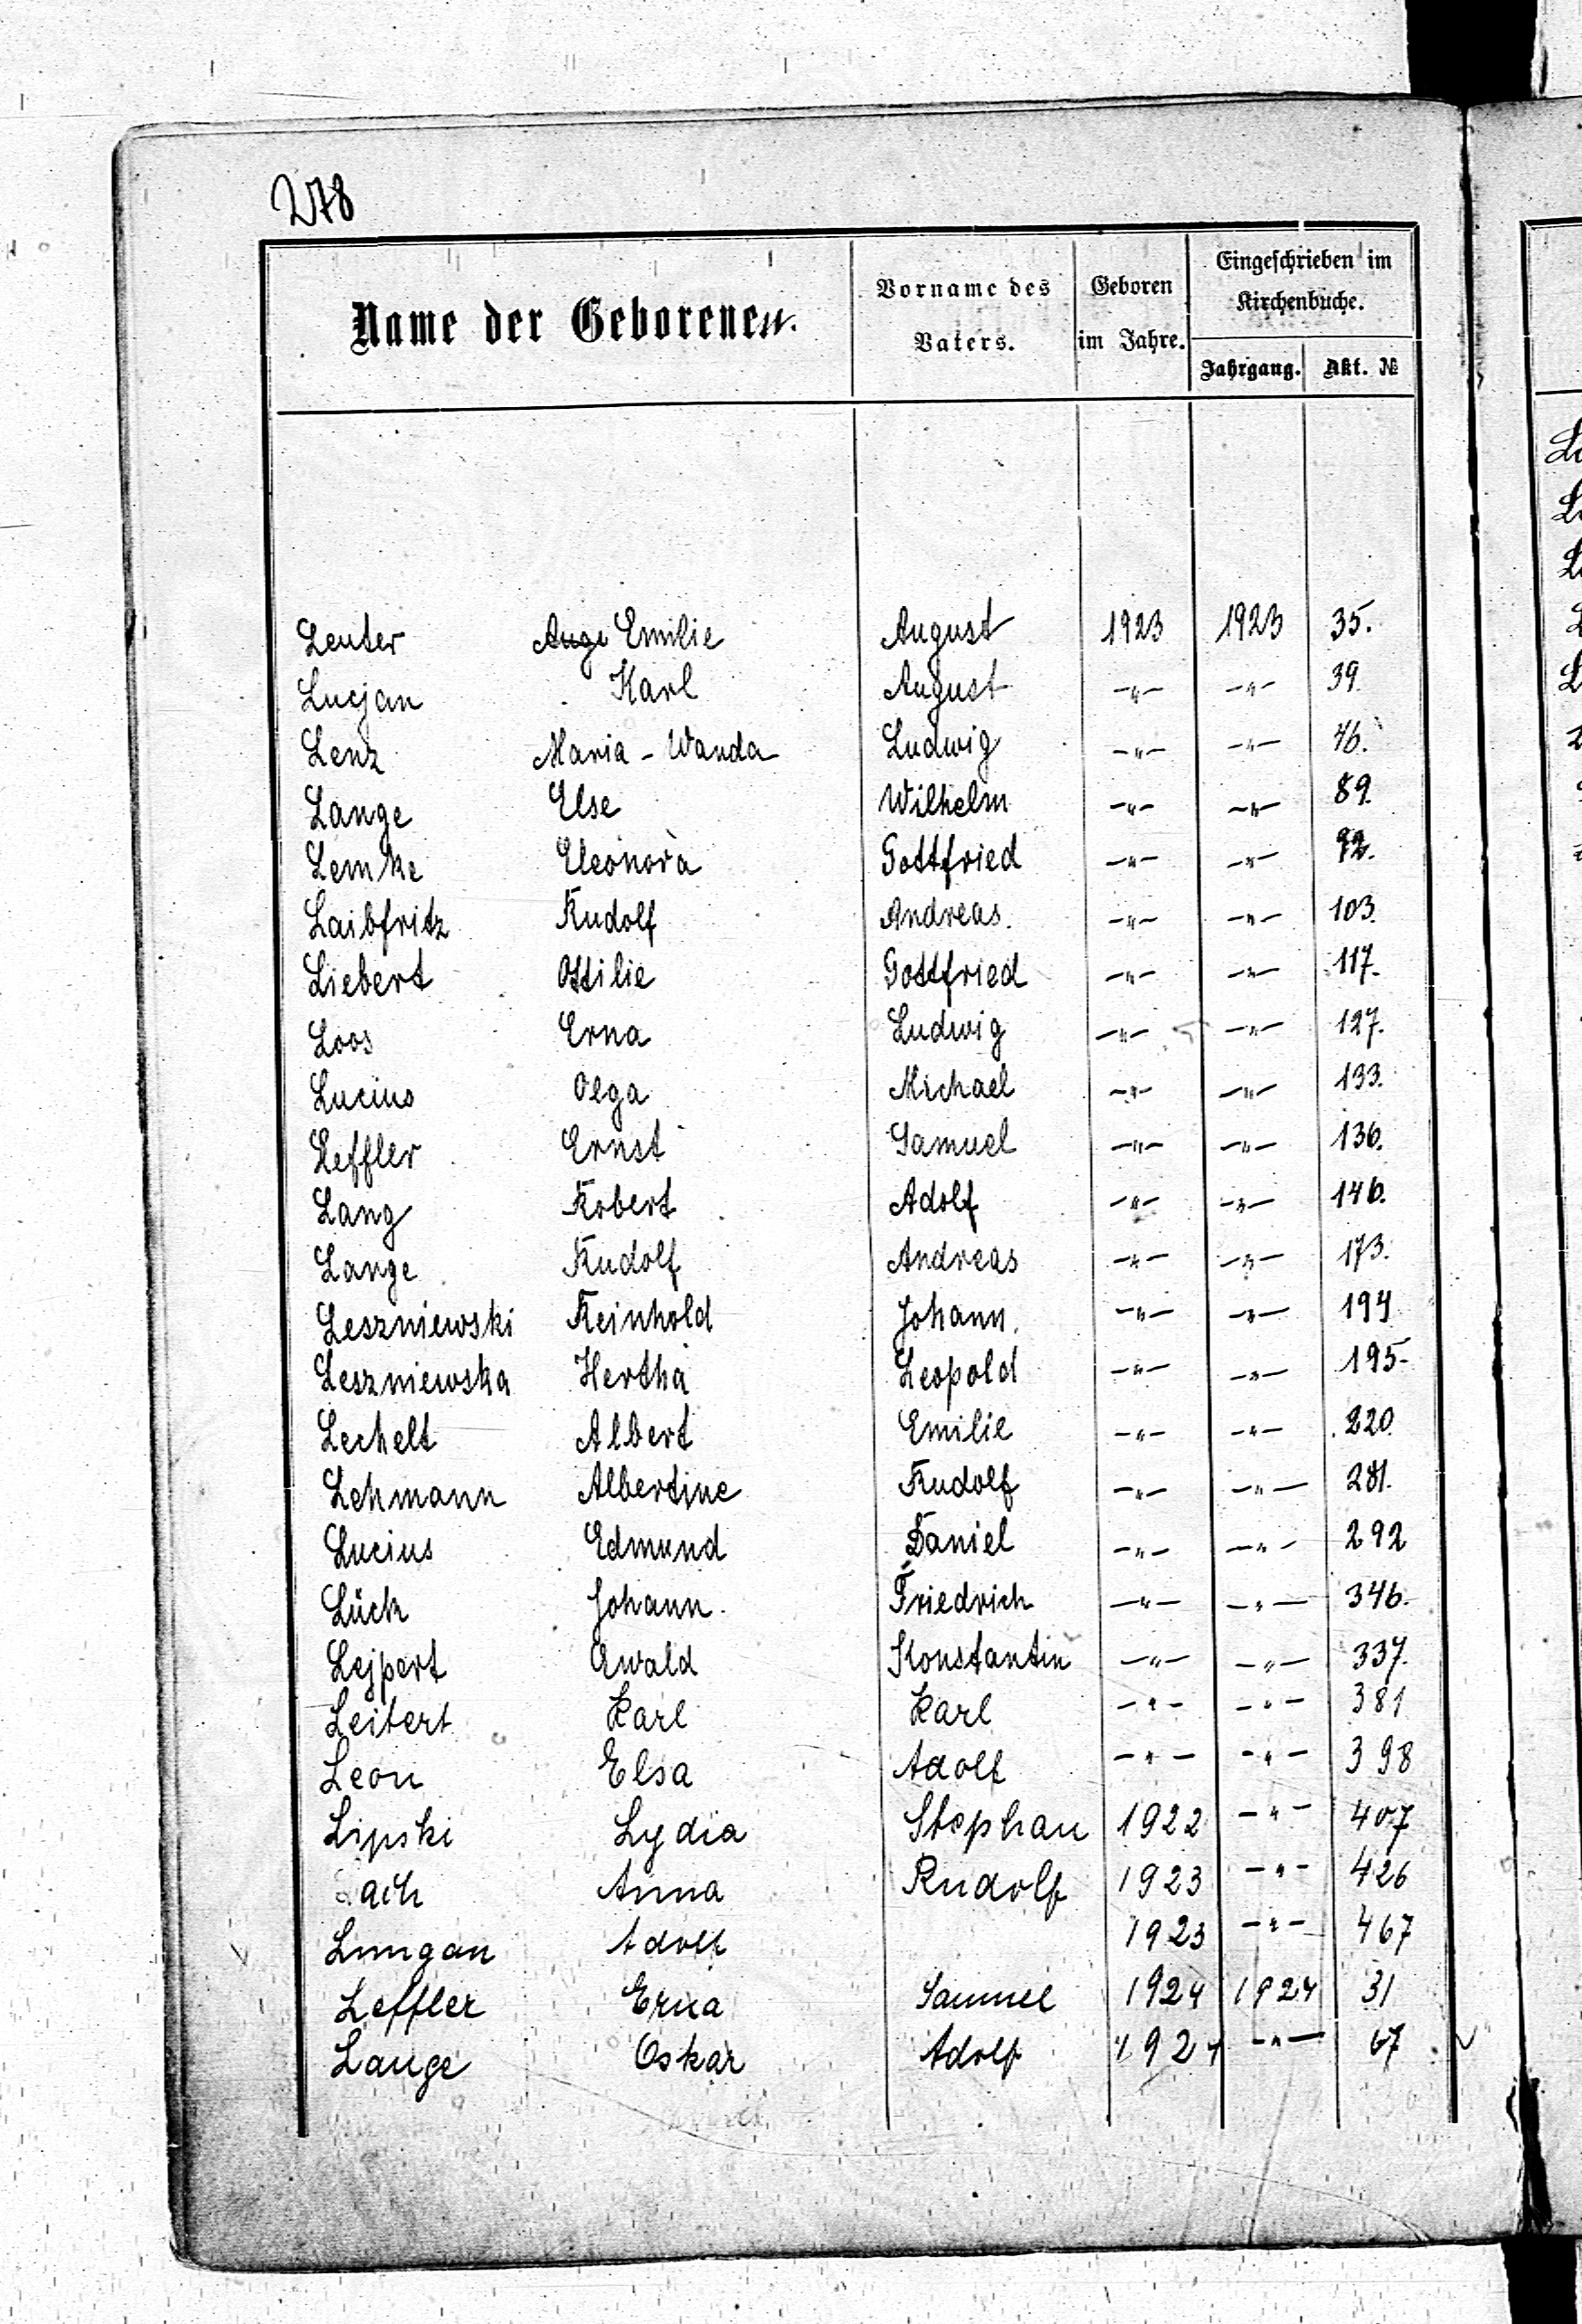 278
Name der Geborenen. Vorname des Vaters. Geboren im Jahre. Eingeschrieben im Kirchenbuche.
Jahrgang. Akt. №
Leuter Augu Emilie August 1923 1923 35.
Lucjan Karl August -"- -"- 39.
Lenz Maria - Wanda Ludwig -"- -"- 46.
Lange Else Wilhelm -"- -"- 89.
Lemke Eleonora Gottfried -"- -"- 92.
Laibfritz Rudolf Andreas. -"- -"- 103.
Liebert Ottilie Gottfried -"- -"- 117.
Loos Erna Ludwig -"- -"- 127.
Lucius Olga Michael -"- -"- 133.
Leffler Ernst Samuel -"- -"- 136.
Lang Robert Adolf -"- -"- 146.
Lange Rudolf Andreas -"- -"- 173.
Leszniewski Reinhold Johann. -"- -"- 194
Leszniewska Hertha Leopold -"- -"- 195-
Lechelt Albert Emilie -"- -"- 220.
Lehmann Albertine Rudolf -"- -"- 281.
Lucius Edmund Daniel -"- -"- 292
Lück Johann. Friedrich -"- -"- 346.
Lejpert Ewald Konstantin -"- -"- 337.
Leitert Karl Karl -"- -"- 381
Leon Elsa Adolf -"- -"- 398
Lipski Lydia Stephan 1922 -"- 407
Lach Anna Rudolf 1923 -"- 426
Adolf 1923 -"- 467
Leffler Erna Samuel 1924 1924 31
Lange Oskar Adolf 1924 -"- 67